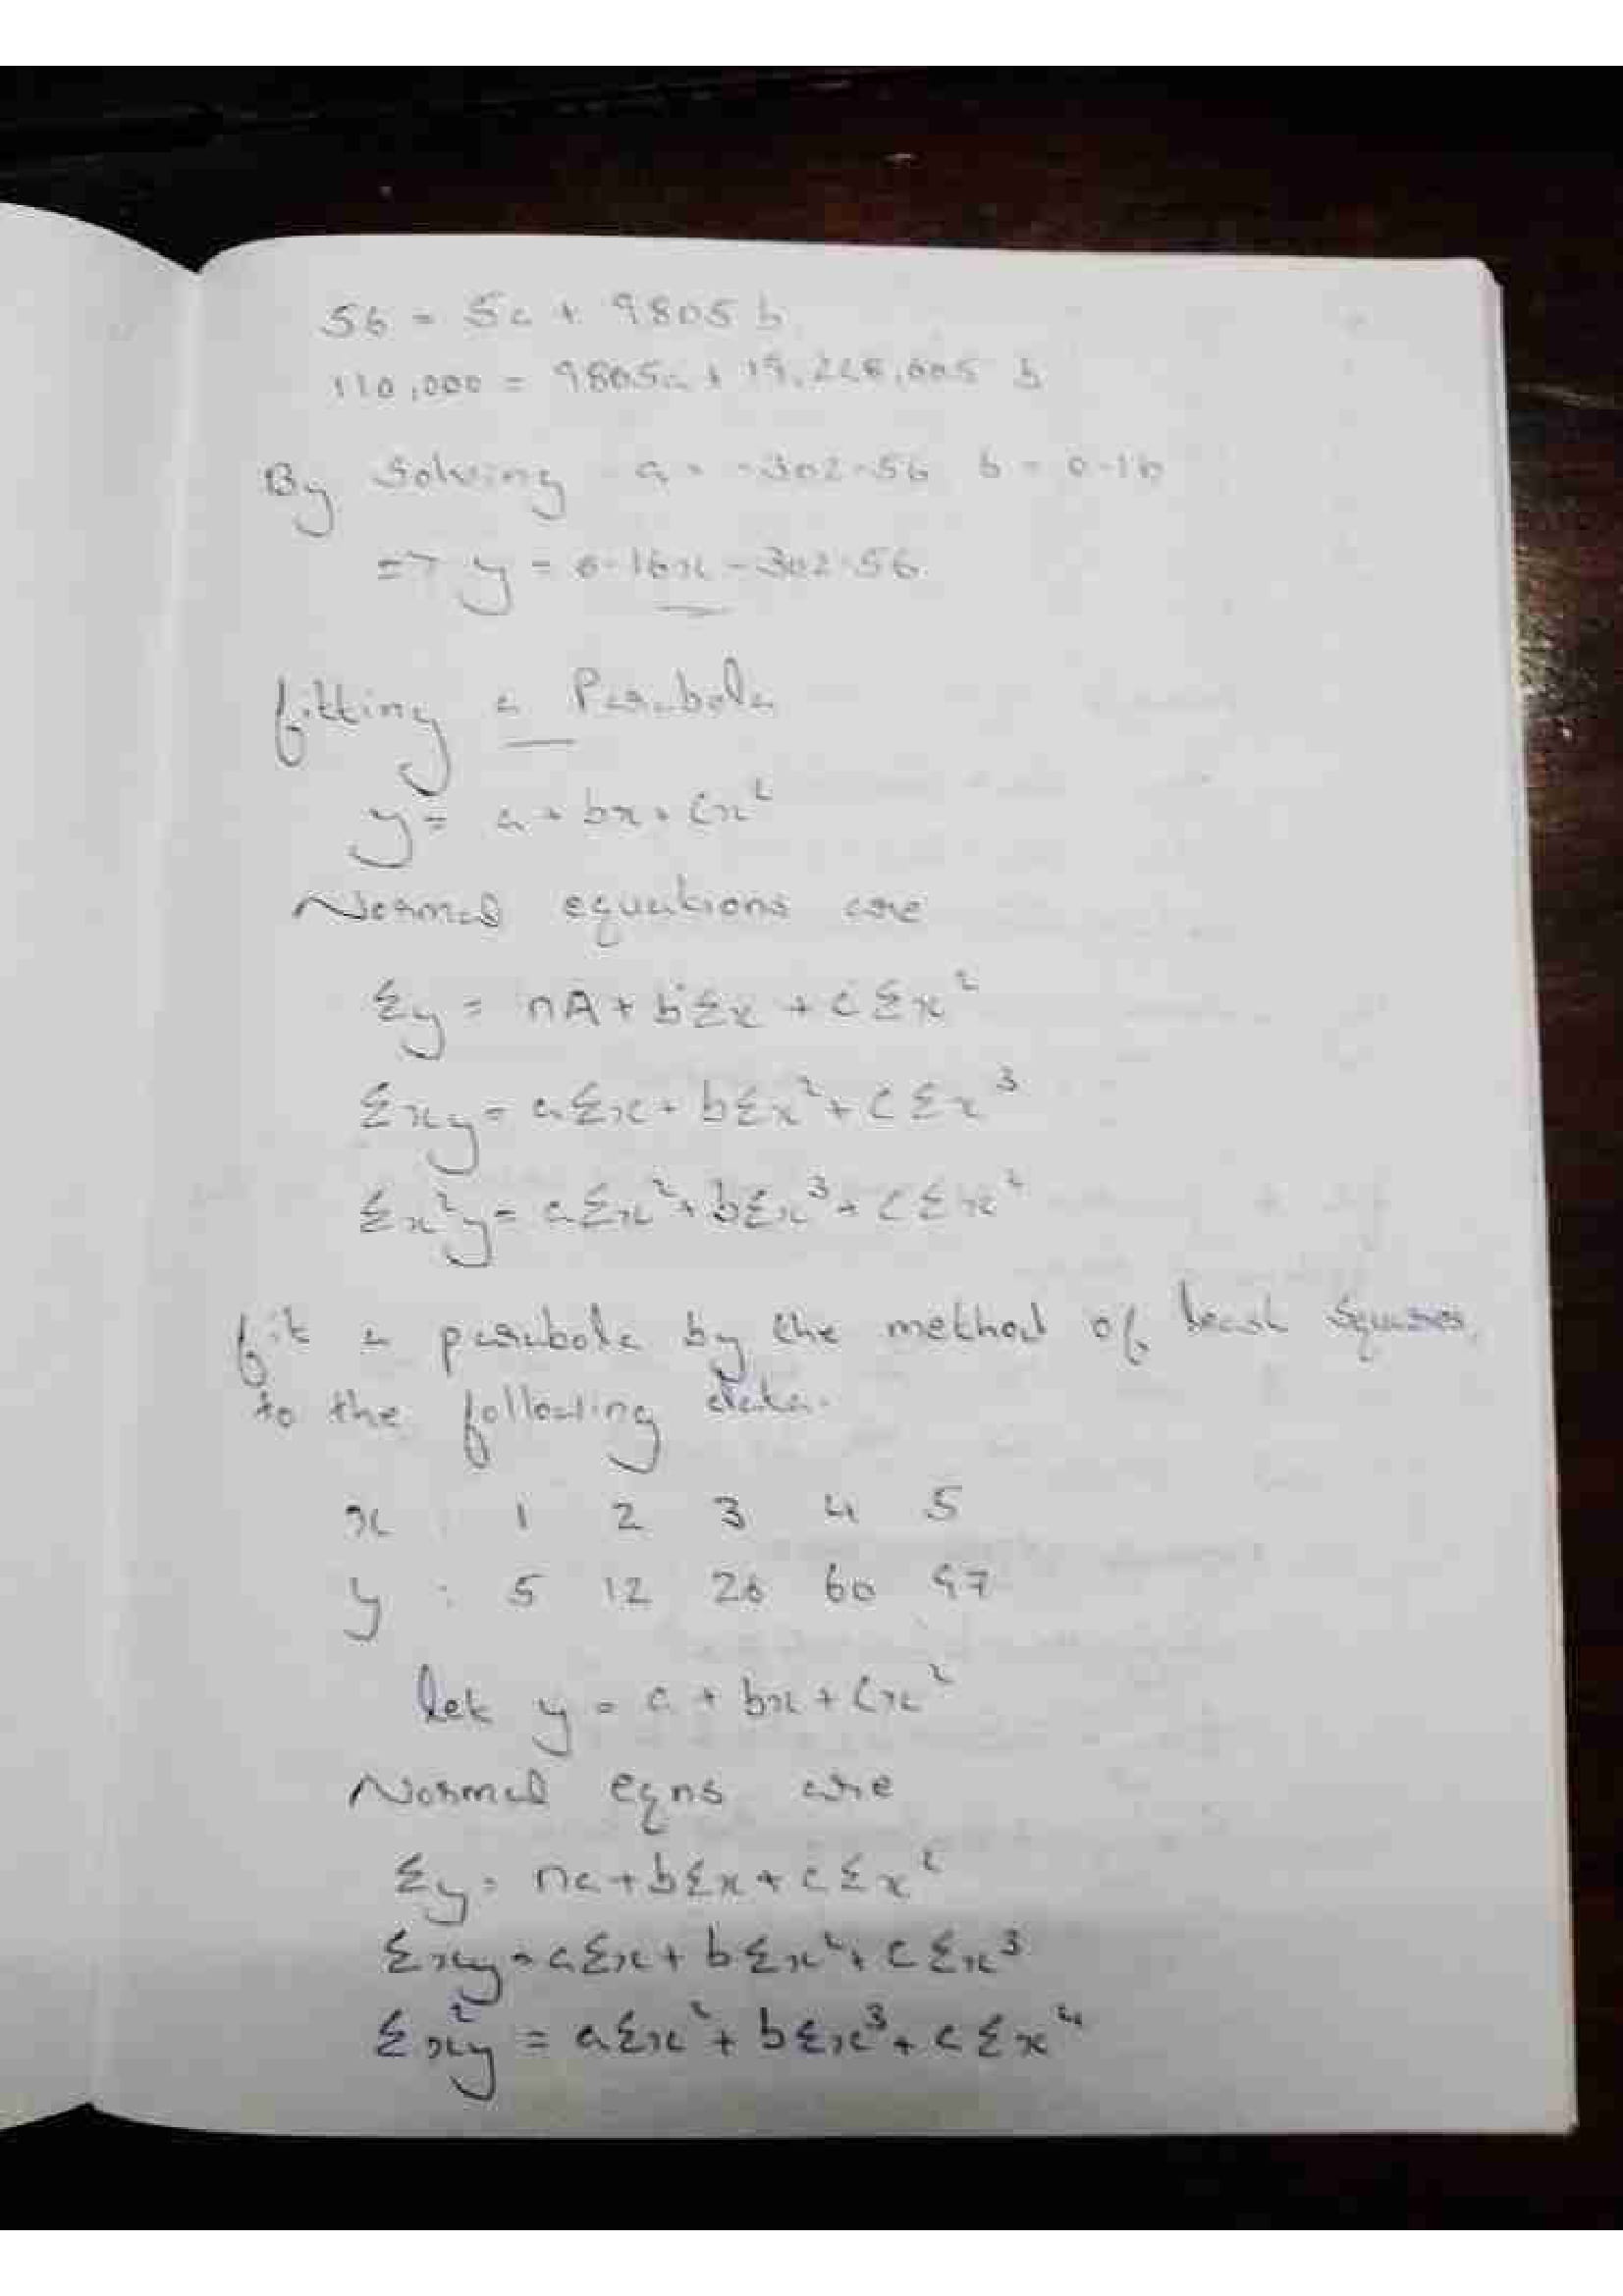 56 = 5a + 9805 b
110,000 = 9805a + 19,228,005 b
By Solving a = -302.56 b = 0.16
=> y = 0.16x - 302.56
fitting a Parabola
y = a + bx + cx²
Normal equations are
Σy = nA + bΣx + cΣx²
Σxy = aΣx + bΣx² + cΣx³
Σx²y = aΣx² + bΣx³ + cΣx⁴
fit a parabola by the method of least squares,
to the following data.
x : 1 2 3 4 5
y : 5 12 26 60 97
let y = a + bx + cx²
Normal eqns are
Σy = na + bΣx + cΣx²
Σxy = aΣx + bΣx² + cΣx³
Σx²y = aΣx² + bΣx³ + cΣx⁴